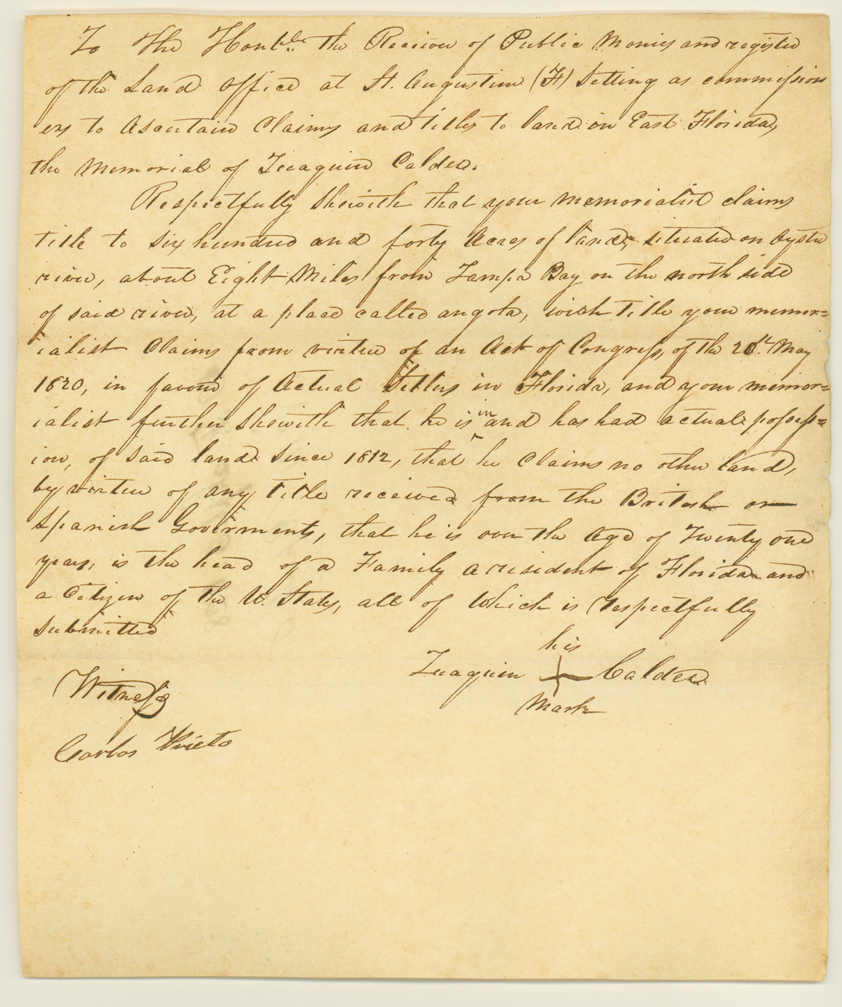 To The Honble. the Reciver of Public Monies and register
of the Land Office at St. Augustine (F) Setting as commission
ers to Ascertain Claims and titles to land in East Florida,
the Memorial of Juaquin Caldes.
Respectfully Sheweth that your memorialist claims
title to six hundred and forty Acres of land, situated on Oyster
river, about Eight Miles from Tampa Bay on the north side
of said river, at a place called angota, wich title your memor=
ialist Claims from virtue of an Act of Congress, of the 28th. May
1820, in favour of Actual Setlers in Florida, and your memor=
ialist further Sheweth that he is in and has had actual possess=
ion, of said land since 1812, that he claims no other land,
by virtue of any title received from the British or
Spanish Goverments, that he is over the Age of Twenty one
years, is the head of a Family a resident of Florida and
a Citizen of the U. States, all of Which is respectfully
Submitted
his
Juaquin + Caldes.
Mark
Witness
Carlos